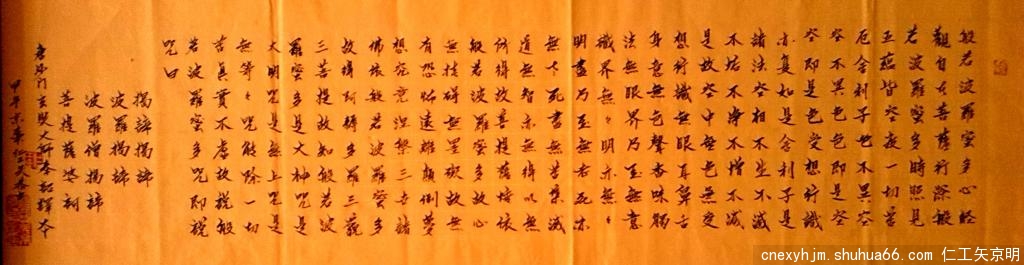 般若波羅蜜多心経
觀自在菩薩行深般
若波羅蜜多時照見
五蘊皆空度一切苦
厄舍利子色不異空
空不異色色即是空
空即是色受想行識
亦復如是舍利子是
諸法空相不生不滅
不垢不淨不增不減
是故空中無色無受
想行識無眼耳鼻舌
身意無色聲香味觸
法無眼界乃至無意
識界無々明亦無々
明盡乃至無老死亦
無老死盡無苦集滅
道無智亦無得以無
所得故菩提薩埵依
般若波羅蜜多故心
無挂碍無罣礙故無
有恐怖遠離顛倒夢
想究竟涅槃三世諸
佛依般若波羅蜜多
故得阿耨多羅三藐
三菩提故知般若波
羅蜜多是大神咒是
大明咒是無上咒是
無等々咒能除一切
苦真實不虛故說般
若波羅蜜多咒即說
咒曰
揭諦揭諦
波羅揭諦
波羅僧揭諦
菩提薩婆訶
唐沙門玄奘大師奉詔譯本
甲午京華
cnexyhjm.shuhua66.com 仁工矢京明